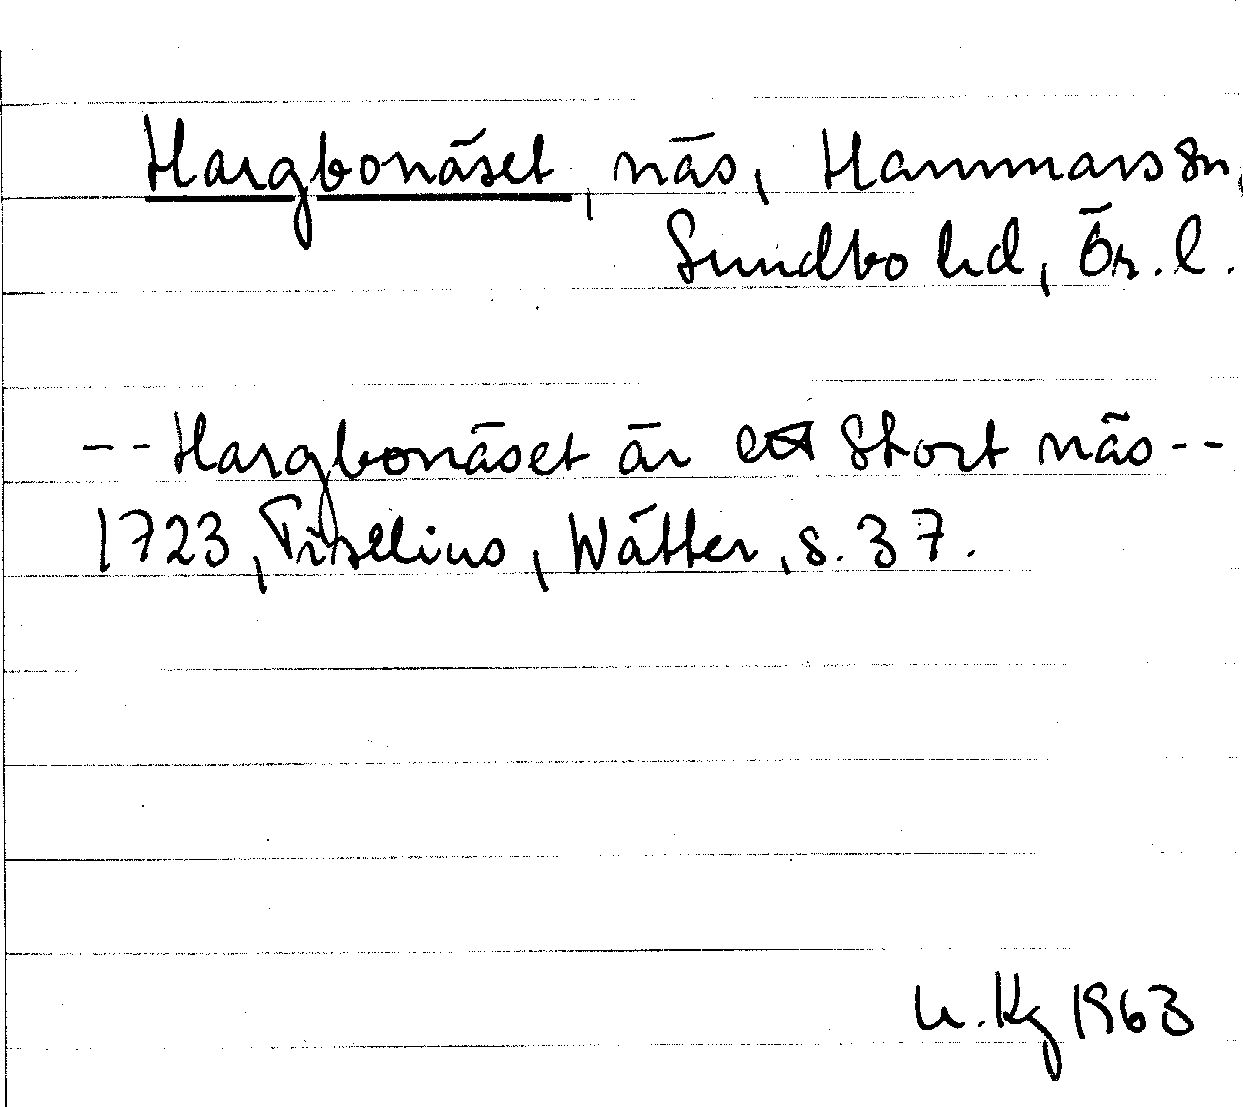 Hargbonäset, näs, Hammars sn,
Sundbo hd, Ör. l.
-- Hargbonäset är ett Stort näs --
1723, Tiselius, Wätter, s. 37.
u. Kg 1963